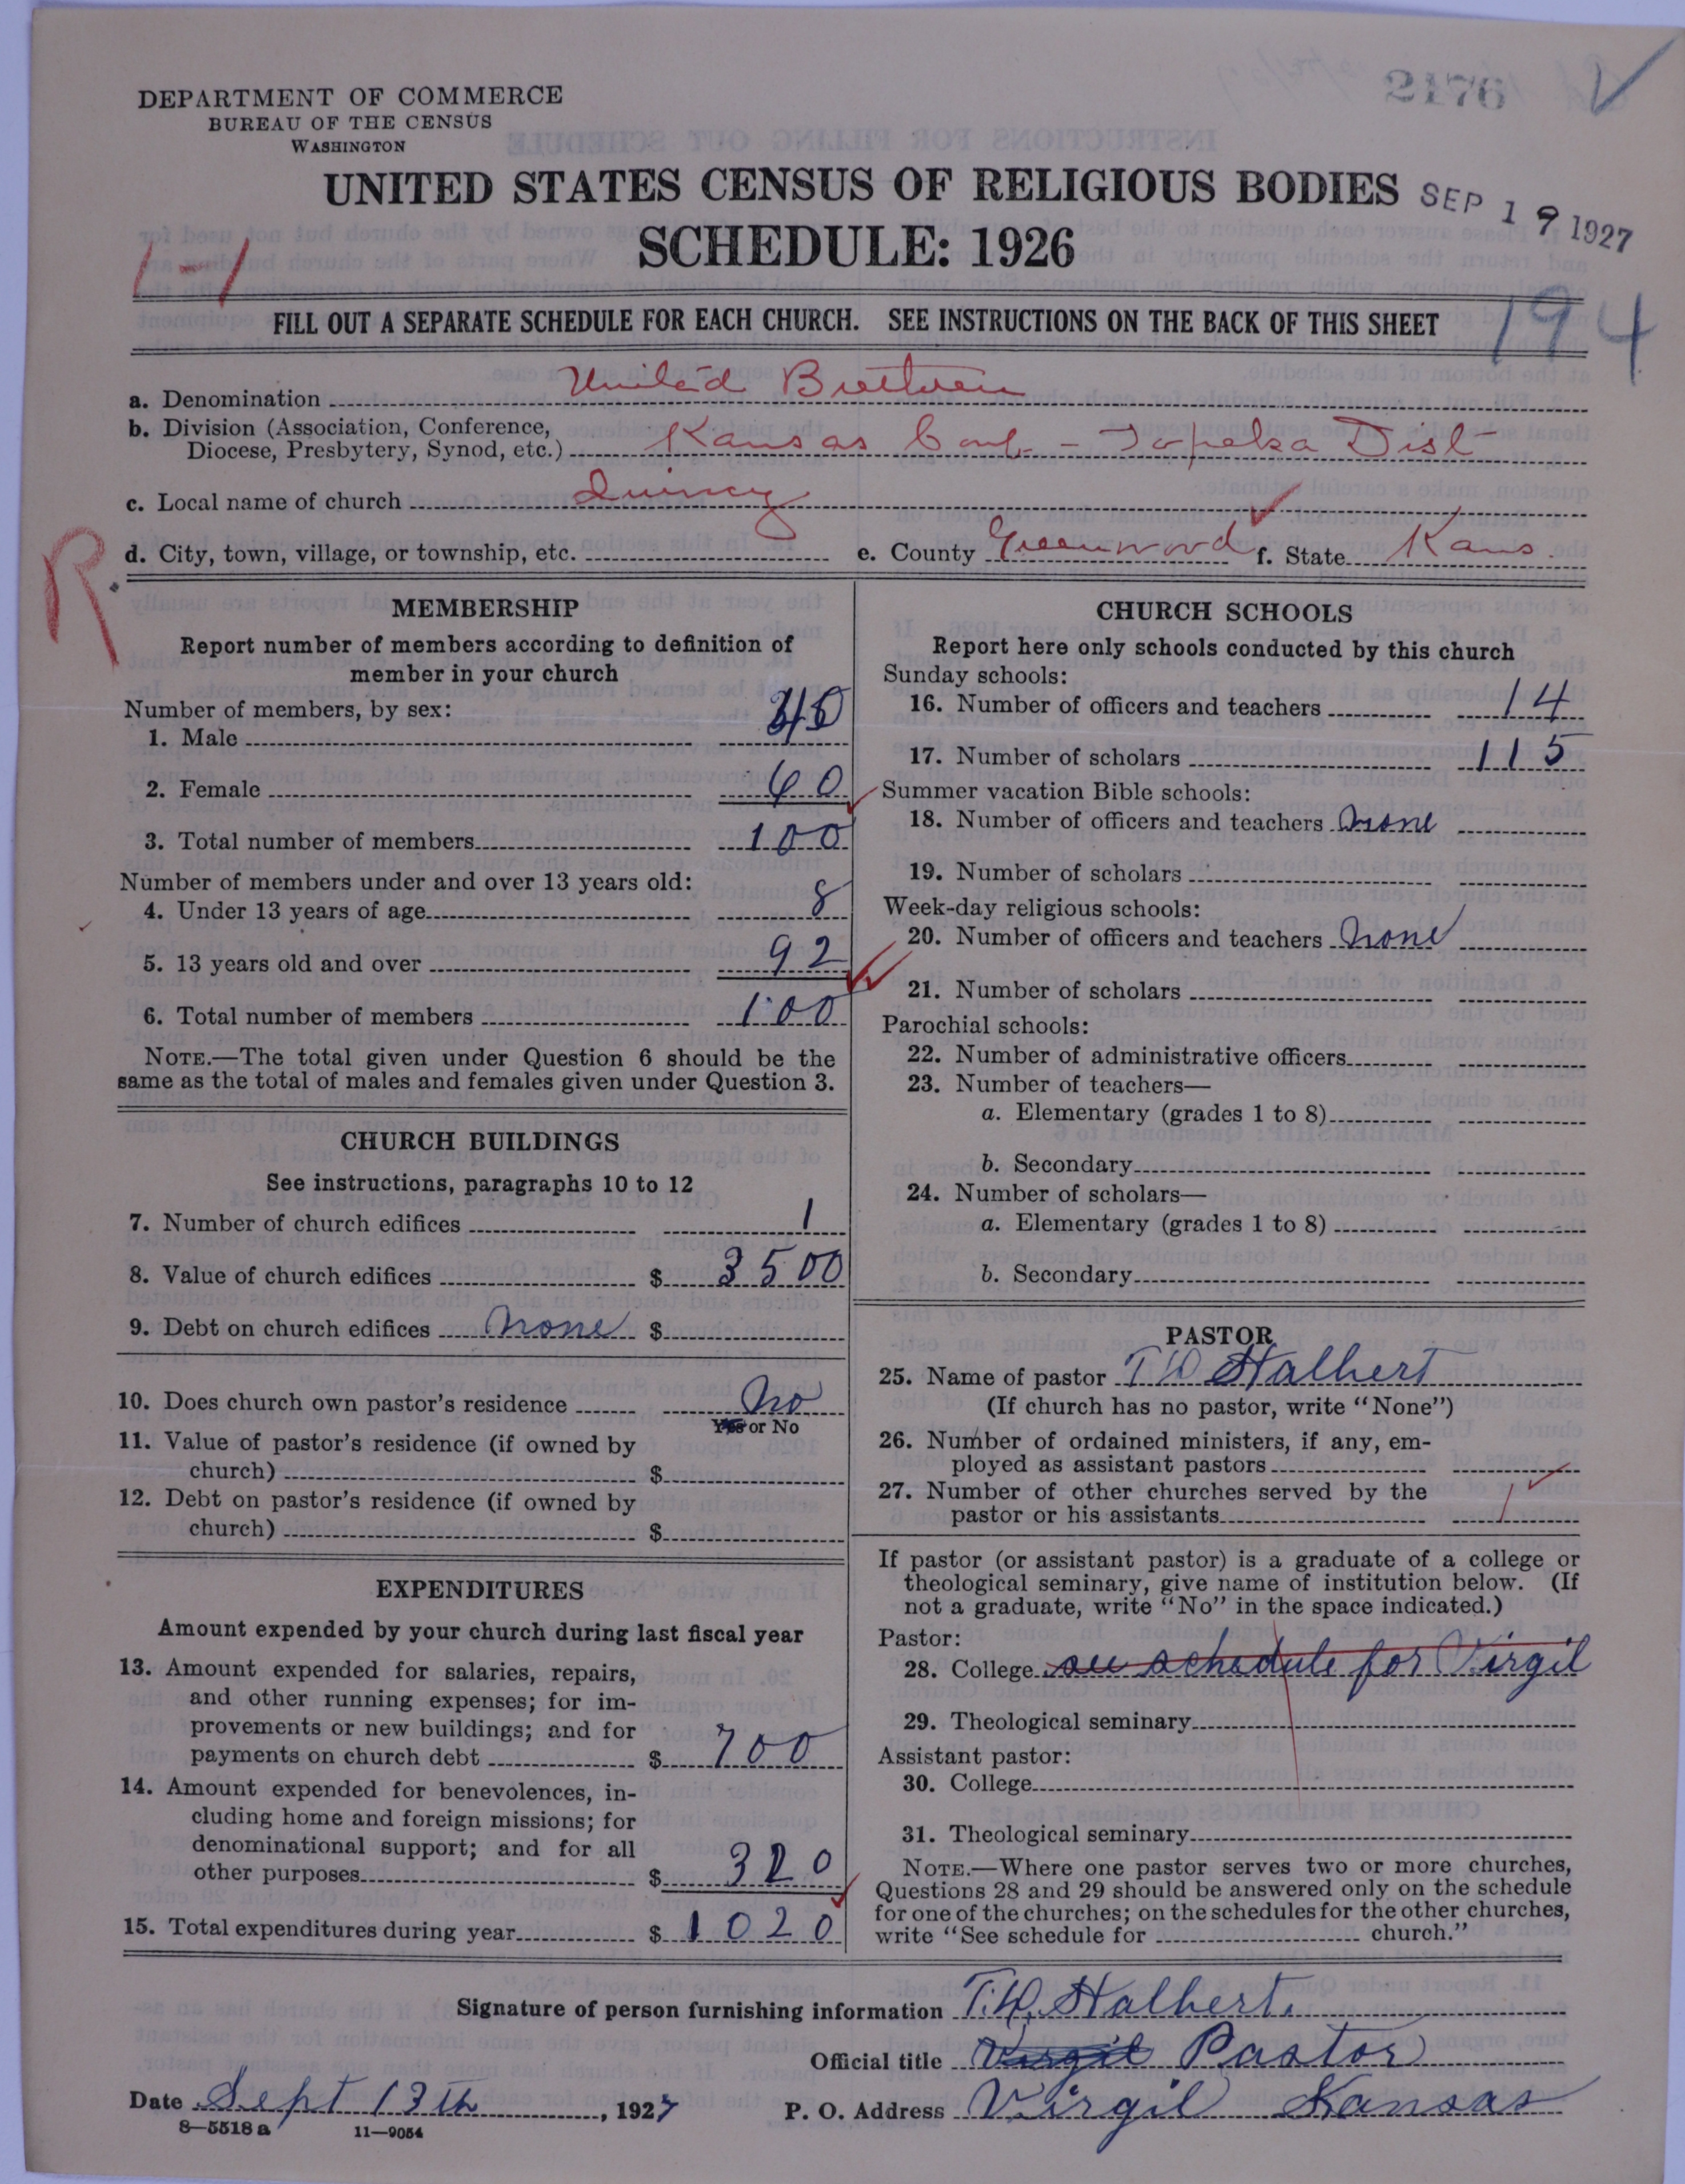 2176
DEPARTMENT OF COMMERCE
BUREAU OF THE CENSUS
WASHINGTON
UNITED STATES CENSUS OF RELIGIOUS BODIES
SEP 19 1927
SCHEDULE: 1926
1-1
194
FILL OUT A SEPARATE SCHEDULE FOR EACH CHURCH. SEE INSTRUCTIONS ON THE BACK OF THIS SHEET
a. Denomination United Brethren
b. Division (Association, Conference,
Diocese, Presbytery, Synod, etc.) Kansas Conf - Topeka Dist
c. Local name of church Quincy
R
d. City, town, village, or township, etc. e. County Greenwood f. State Kans
MEMBERSHIP
Report number of members according to definition of
member in your church
Number of members, by sex:
1. Male 40
2. Female 60
3. Total number of members 100
Number of members under and over 13 years old:
4. Under 13 years of age 8
5. 13 years old and over 92
6. Total number of members 100
NOTE.—The total given under Question 6 should be the
same as the total of males and females given under Question 3.
CHURCH BUILDINGS
See instructions, paragraphs 10 to 12
7. Number of church edifices 1
8. Value of church edifices $ 3500
9. Debt on church edifices none $
10. Does church own pastor's residence No
Yes or No
11. Value of pastor's residence (if owned by
church) $
12. Debt on pastor's residence (if owned by
church) $
EXPENDITURES
Amount expended by your church during last fiscal year
13. Amount expended for salaries, repairs,
and other running expenses; for im-
provements or new buildings; and for
payments on church debt $ 700
14. Amount expended for benevolences, in-
cluding home and foreign missions; for
denominational support; and for all
other purposes $ 320
15. Total expenditures during year $ 1020
CHURCH SCHOOLS
Report here only schools conducted by this church
Sunday schools:
16. Number of officers and teachers 14
17. Number of scholars 115
Summer vacation Bible schools:
18. Number of officers and teachers none
19. Number of scholars
Week-day religious schools:
20. Number of officers and teachers none
21. Number of scholars
Parochial schools:
22. Number of administrative officers
23. Number of teachers—
a. Elementary (grades 1 to 8)
b. Secondary
24. Number of scholars—
a. Elementary (grades 1 to 8)
b. Secondary
PASTOR
25. Name of pastor T W Halbert
(If church has no pastor, write "None")
26. Number of ordained ministers, if any, em-
ployed as assistant pastors
27. Number of other churches served by the
pastor or his assistants 1
If pastor (or assistant pastor) is a graduate of a college or
theological seminary, give name of institution below. (If
not a graduate, write "No" in the space indicated.)
Pastor:
28. College see schedule for Virgil
29. Theological seminary
Assistant pastor:
30. College
31. Theological seminary
NOTE.—Where one pastor serves two or more churches,
Questions 28 and 29 should be answered only on the schedule
for one of the churches; on the schedules for the other churches,
write "See schedule for church."
Signature of person furnishing information T.W. Halbert.
Official title Virgil Pastor
Date Sept 13th, 1927 P. O. Address Virgil Kansas
8—5518 a 11—9054